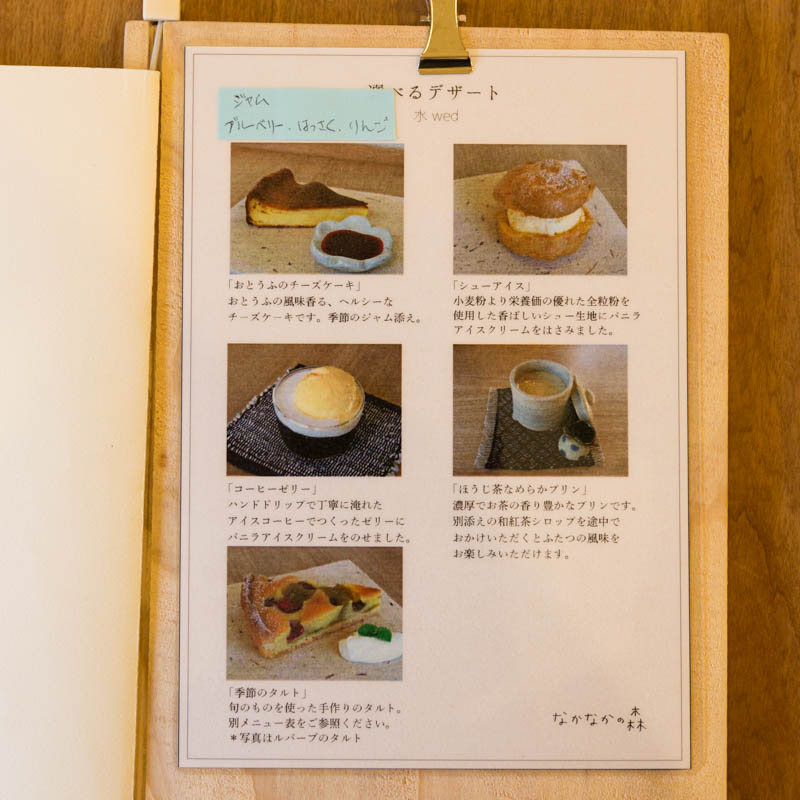 べるデザート
水 wed
ジャム
ブルーベリー、はっさく、りんご
「おとうふのチーズケーキ」
おとうふの風味香る、ヘルシーな
チーズケーキです。季節のジャム添え。
「シューアイス」
小麦粉より栄養価の優れた全粒粉を
使用した香ばしいシュー生地にバニラ
アイスクリームをはさみました。
「コーヒーゼリー」
ハンドドリップで丁寧に淹れた
アイスコーヒーでつくったゼリーに
バニラアイスクリームをのせました。
「ほうじ茶なめらかプリン」
濃厚でお茶の香り豊かなプリンです。
別添えの和紅茶シロップを途中で
おかけいただくとふたつの風味を
お楽しみいただけます。
「季節のタルト」
旬のものを使った手作りのタルト。
別メニュー表をご参照ください。
＊写真はルバーブのタルト
なかなかの森